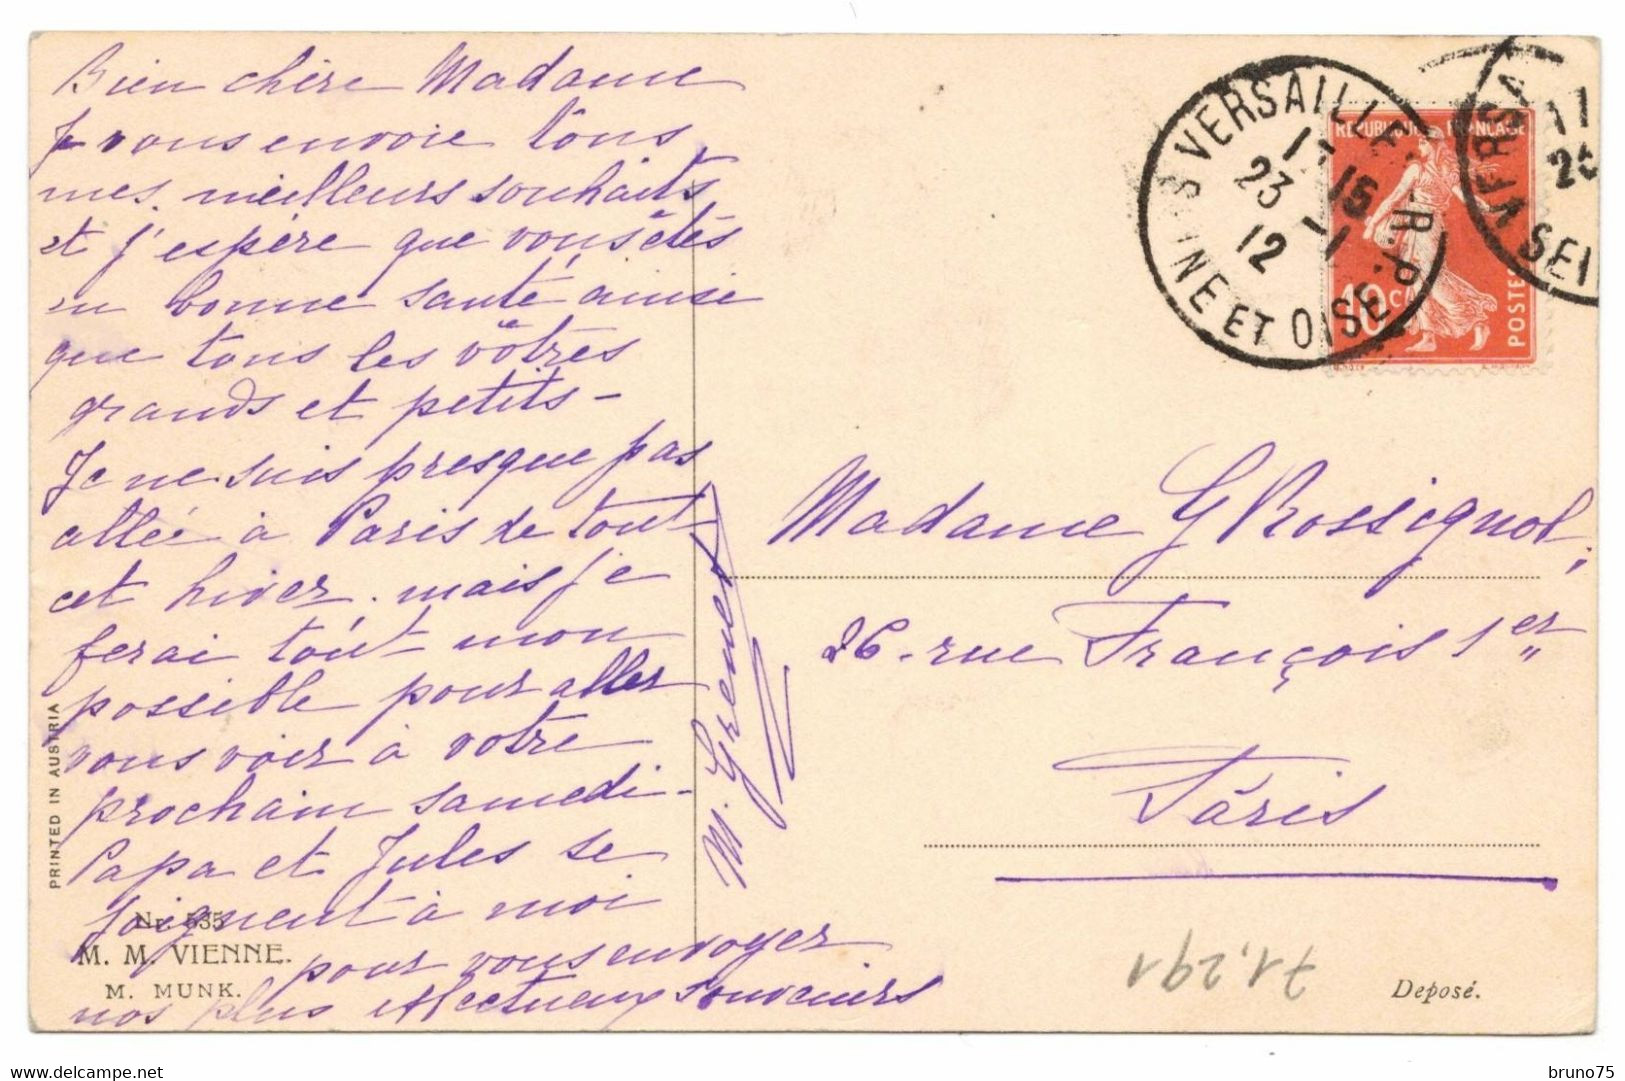 Bien chère Madame
Je vous envoie tous
mes meilleurs souhaits
et j'espère que vous êtes
en bonne santé ainsi
que tous les vôtres
grands et petits -
Je ne suis presque pas
allée à Paris de tout
cet hiver. mais je
ferai tout mon
possible pour aller
vous voir à votre
prochain samedi -
Papa et Jules se
joignent à moi
pour vous envoyer
nos plus affectueux souvenirs
M.
PRINTED IN AUSTRIA
Nr. 535
M. M. VIENNE.
M. MUNK.
VERSAILLES R.P.
23 - 1
12
NE ET OISE
REPUBLIQUE FRANÇAISE
10 c
POSTES
VERSA
SEI
Madame G Rossignol,
26 - rue François 1er
Paris
71.291
Deposé.
delcampe.net
bruno75